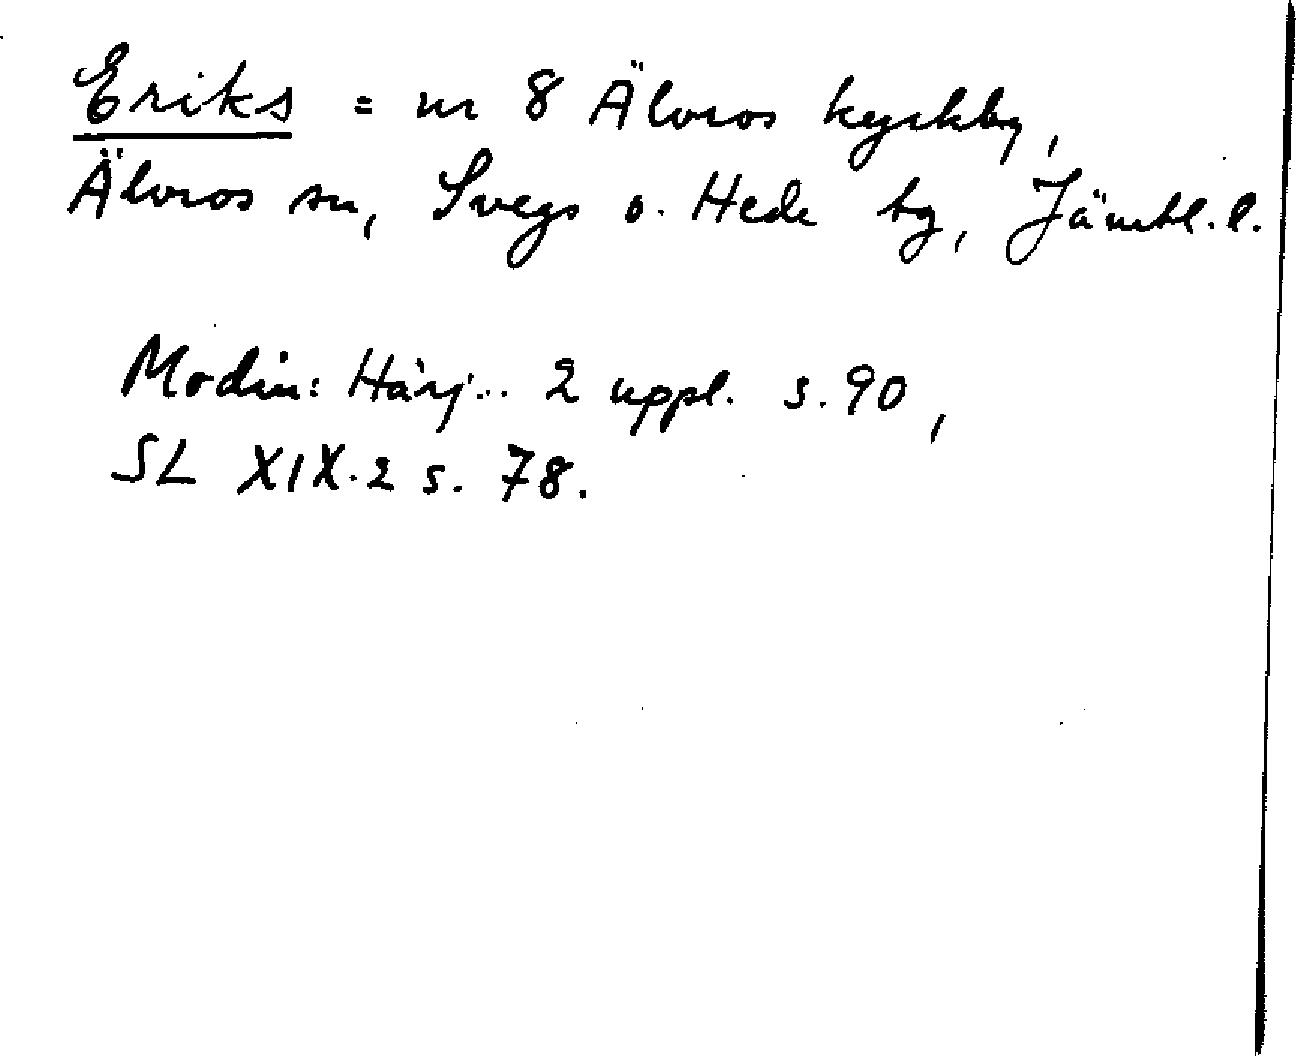 Eriks = nr 8 Älvros kyrkby,
Älvros sn, Svegs o. Hede tg, Jämtl. l.
Modin: Härj... 2 uppl. s. 90,
SL XIX.2 s. 78.